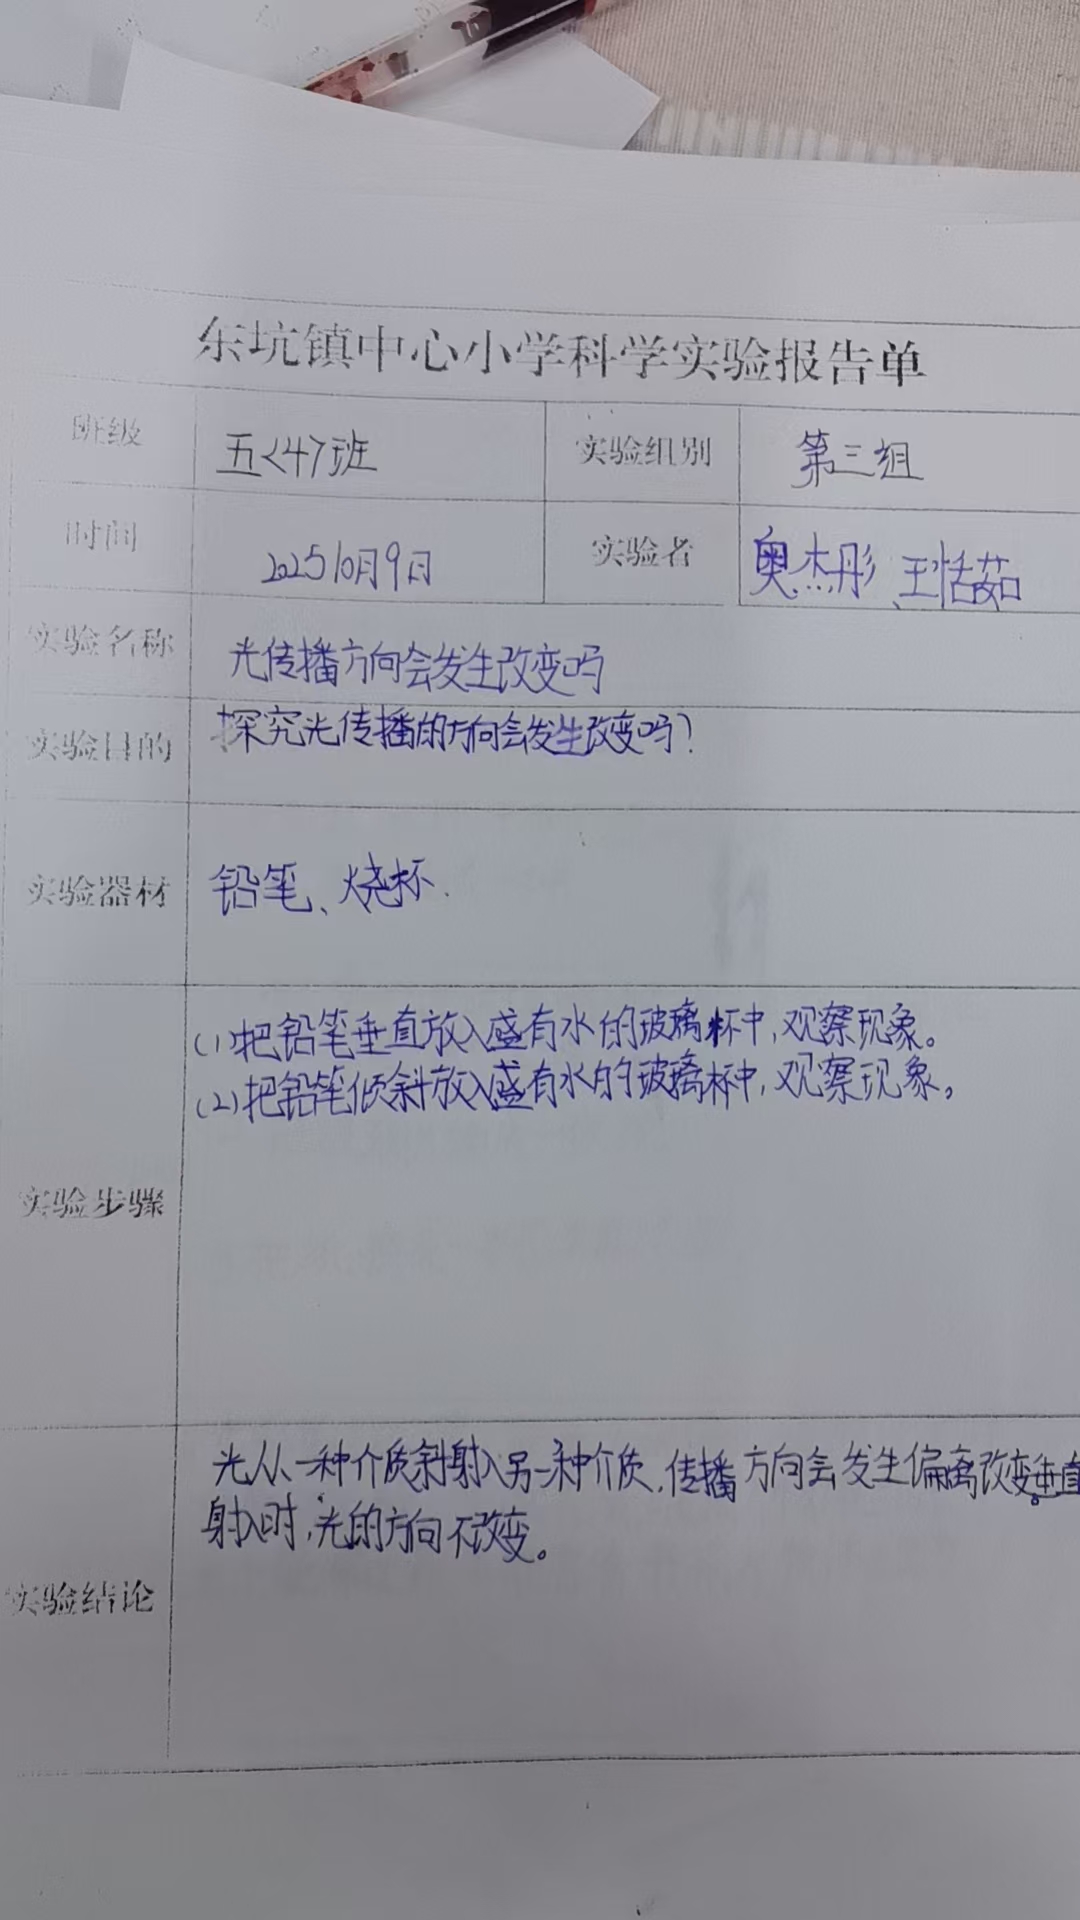 东坑镇中心小学科学实验报告单
班级 五<4>班 实验组别 第三组
时间 2025 10月9日 实验者 奥杰彤 王恬茹
实验名称 光传播方向会发生改变吗
实验目的 探究光传播的方向会发生改变吗?
实验器材 铅笔、烧杯.
实验步骤
(1)把铅笔垂直放入盛有水的玻璃杯中,观察现象。
(2)把铅笔倾斜放入盛有水的玻璃杯中,观察现象。
实验结论
光从一种介质斜射入另一种介质,传播方向会发生偏离改变。垂直
射入时,光的方向不改变。